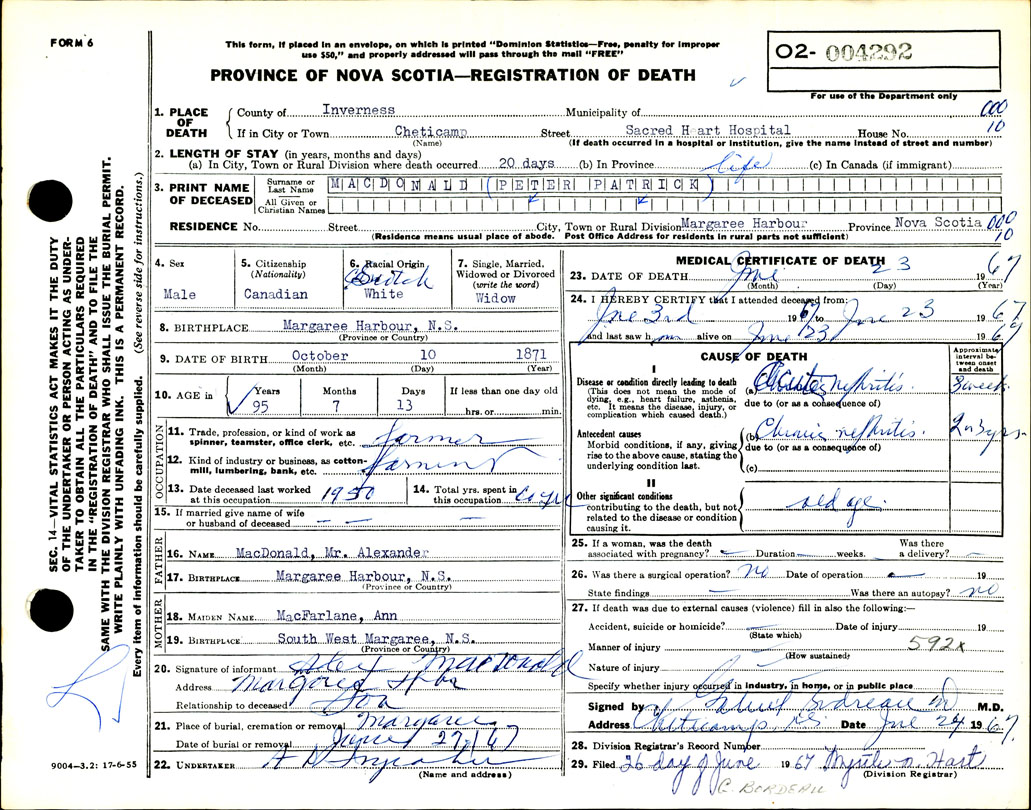 FORM 6
This form, if placed in an envelope, on which is printed "Dominion Statistics—Free, penalty for improper
use $50," and properly addressed will pass through the mail "FREE"
PROVINCE OF NOVA SCOTIA—REGISTRATION OF DEATH
O2- 004292
For use of the Department only
1. PLACE OF DEATH
County of Inverness Municipality of 000
If in City or Town Cheticamp Street Sacred Heart Hospital House No. 10
(Name) (If death occurred in a hospital or institution, give the name instead of street and number)
2. LENGTH OF STAY (in years, months and days)
(a) In City, Town or Rural Division where death occurred 20 days (b) In Province life (c) In Canada (if immigrant)
3. PRINT NAME OF DECEASED
Surname or Last Name MACDONALD (PETER PATRICK)
All Given or Christian Names
RESIDENCE No. Street City, Town or Rural Division Margaree Harbour Province Nova Scotia 000
(Residence means usual place of abode. Post Office Address for residents in rural parts not sufficient) 10
4. Sex Male
5. Citizenship (Nationality) Canadian
6. Racial Origin White
7. Single, Married, Widowed or Divorced (write the word) Widow
8. BIRTHPLACE Margaree Harbour, N.S.
(Province or Country)
9. DATE OF BIRTH October 10 1871
(Month) (Day) (Year)
10. AGE in Years 95 Months 7 Days 13 If less than one day old hrs. or min.
OCCUPATION
11. Trade, profession, or kind of work as spinner, teamster, office clerk, etc. farmer
12. Kind of industry or business, as cotton-mill, lumbering, bank, etc. farming
13. Date deceased last worked at this occupation 1950
14. Total yrs. spent in this occupation
15. If married give name of wife or husband of deceased — — —
FATHER
16. NAME MacDonald, Mr. Alexander
17. BIRTHPLACE Margaree Harbour, N.S.
(Province or Country)
MOTHER
18. MAIDEN NAME MacFarlane, Ann
19. BIRTHPLACE South West Margaree, N.S.
(Province or Country)
20. Signature of informant Alex MacDonald
Address Margaree Hbr
Relationship to deceased Son
21. Place of burial, cremation or removal Margaree
Date of burial or removal June 27/67
22. UNDERTAKER
(Name and address)
MEDICAL CERTIFICATE OF DEATH
23. DATE OF DEATH June 23 1967
(Month) (Day) (Year)
24. I HEREBY CERTIFY that I attended deceased from:
June 3rd 1967 to June 23 1967
and last saw him alive on June 23 1967
CAUSE OF DEATH
Approximate interval between onset and death
I
Disease or condition directly leading to death (a) nephritis. 3 week
(This does not mean the mode of dying, e.g., heart failure, asthenia, etc. It means the disease, injury, or complication which caused death.)
due to (or as a consequence of)
Antecedent causes (b) Chronic nephritis. 2 or 3 yrs.
Morbid conditions, if any, giving rise to the above cause, stating the underlying condition last.
due to (or as a consequence of)
(c)
II
Other significant conditions old age.
contributing to the death, but not related to the disease or condition causing it.
25. If a woman, was the death associated with pregnancy? — Duration weeks. Was there a delivery? —
26. Was there a surgical operation? no Date of operation — 19
State findings — Was there an autopsy? no
27. If death was due to external causes (violence) fill in also the following:—
Accident, suicide or homicide? — Date of injury 19
(State which)
Manner of injury 592x
(How sustained)
Nature of injury
Specify whether injury occurred in industry, in home, or in public place
Signed by Bordreau M.D.
Address Cheticamp N.S. Date June 24 1967
28. Division Registrar's Record Number
29. Filed 26 day of June 1967 Myrtle Hart
(Division Registrar)
C. BORDEAU
SEC. 14—VITAL STATISTICS ACT MAKES IT THE DUTY
OF THE UNDERTAKER OR PERSON ACTING AS UNDER-
TAKER TO OBTAIN ALL THE PARTICULARS REQUIRED
IN THE "REGISTRATION OF DEATH" AND TO FILE THE
SAME WITH THE DIVISION REGISTRAR WHO SHALL ISSUE THE BURIAL PERMIT.
WRITE PLAINLY WITH UNFADING INK. THIS IS A PERMANENT RECORD.
Every item of information should be carefully supplied. (See reverse side for instructions.)
9004—3.2: 17-6-55